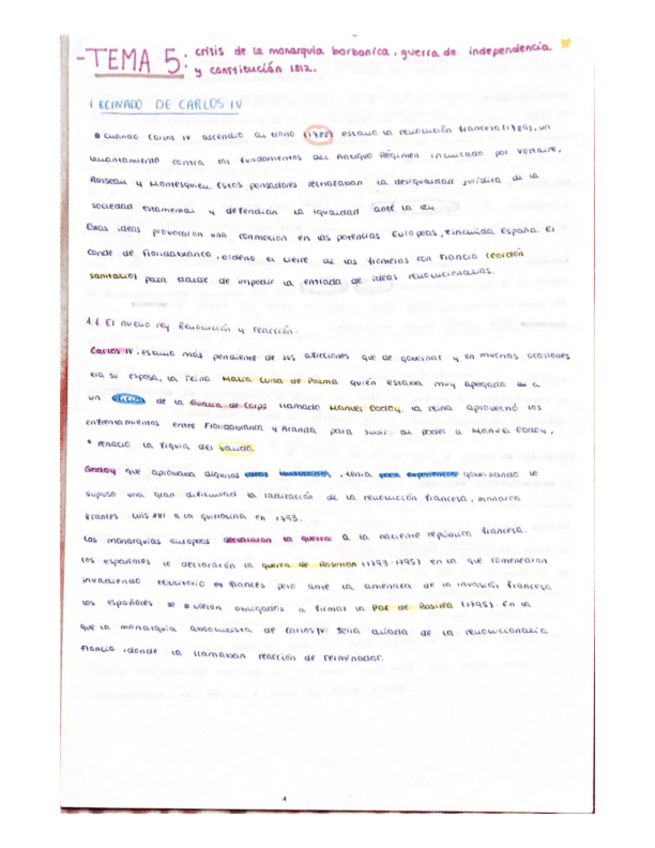 -TEMA 5: crisis de la monarquía borbonica, guerra de independencia
y constitución 1812.
1 REINADO DE CARLOS IV
Cuando Carlos IV ascendio al trono (1788) estalló la revolución francesa (1789), un
levantamiento contra los fundamentos del Antiguo Régimen inculcado por Voltaire,
Rosseau y Montesquieu. Estos pensadores rechazaban la desigualdad jurídica de la
sociedad estamental y defendian la igualdad ante la ley.
Estas ideas provocaron una conmocion en las potencias Europeas, incluida España. El
conde de Floridablanca, ordeno el cierre de las fronteras con Francia (cordón
sanitario) para tratar de impedir la entrada de ideas revolucionarias.
El nuevo rey. Revolución y reacción.
Carlos IV, estuvo más pendiente de sus aficciones que de gobernar y en muchas ocasiones
era su esposa, la reina Maria Luisa de Parma quién estaba muy apegada a
un de la Guardia de Corps llamado Manuel Godoy. la reina aprovechó los
enfrentamientos entre Floridablanca y Aranda para subir al poder a Manuel Godoy,
renacio la figura del valido.
Godoy que apoyaba algunas , tenia poca experiencia gobernando le
supuso una gran dificultad la radicación de la revolución francesa, monarca
frances Luis XVI a la guillotina en 1793.
Las monarquías europeas declararon la guerra a la naciente república francesa.
Los españoles le declararón la guerra de Rosellon (1793-1795) en la que comenzaron
invadiendo territorio francés pero ante la amenaza de la invasión francesa
los españoles se vieron obligados a firmar la Paz de Basilea (1795). En la
que la monarquía absolutista de Carlos IV seria aliada de la revolucionaria
Francia, donde la llamaban reacción de Termidor.
4